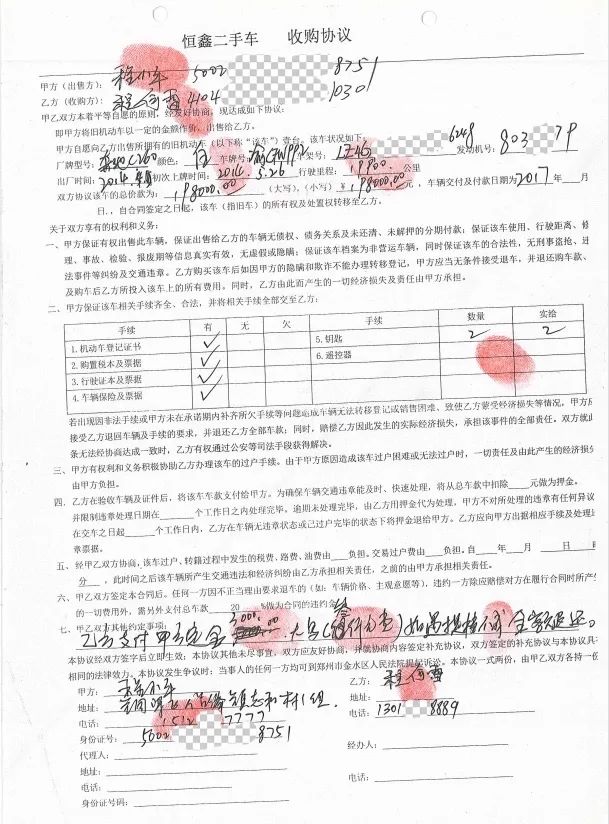 恒鑫二手车 收购协议
甲方(出售方): 程小车 5002 8751
乙方(收购方): 4104 1030
甲乙双方本着平等自愿的原则,经友好协商,现达成如下协议:
即甲方将旧机动车以一定的金额作价,出售给乙方。
甲方自愿向乙方出售所拥有的旧机动车(以下称“该车”)壹台。该车状况如下:
厂牌型号: C260 颜色: 白 车牌号: 车架号: LE4G 6248 发动机号: 803 79
出厂时间: 2016. 初次上牌时间: 2016. 5.26 行驶里程: 19900 公里
双方协议该车的总价款为: 198000.00 (大写),(小写)¥ 198000.00 元,车辆交付及付款日期为2017年 月
日.,自合同签定之日起,该车(指旧车)的所有权及处置权转移至乙方。
关于双方享有的权利和义务:
一、甲方保证有权出售此车辆。保证出售给乙方的车辆无债权、债务关系及未还清、未解押的分期付款;保证该车使用、行驶距离、修
理、事故、检验、报废期等信息真实有效,无虚假或隐瞒;保证该车档案为非营运车辆,同时保证该车的合法性,无刑事盗抢、违
法事件等纠纷及交通违章。乙方购买该车后如因甲方的隐瞒和欺诈不能办理转移登记,甲方应当无条件接受退车,并退还购车款、
及购车后乙方所投入该车上的所有费用。同时,乙方由此而产生的一切经济损失及责任由甲方承担。
二、甲方保证该车相关手续齐全、合法,并将相关手续全部交至乙方:
手续 有 无 欠 手续 数量 实给
1.机动车登记证书 ✓ 5.钥匙 2 2
2.购置税本及票据 ✓ 6.遥控器
3.行驶证本及票据 ✓
4.车辆保险及票据 ✓
若出现因非法手续或甲方未在承诺期内补齐所欠手续等问题造成车辆无法转移登记或销售困难、致使乙方蒙受经济损失等情况,甲方
接受乙方退回车辆及手续的要求,并退还乙方全部车款;同时,赔偿乙方因此发生的实际经济损失,承担该事件的全部责任。双方就
条无法经协商达成一致时,乙方有权通过公安等司法手段获得解决。
三、甲方有权利和义务积极协助乙方办理该车的过户手续。由于甲方原因造成该车过户困难或无法过户时,一切责任及由此产生的经济损
由甲方负担。
四、乙方在验收车辆及证件后,将该车车款支付给甲方。为确保车辆交通违章能及时、快速处理,将从总车款中扣除 元做为押金。
并限制违章处理日期在 个工作日之内处理完毕。逾期未处理完毕,由乙方用押金代为处理,甲方不对所处理的违章有任何异议
在交车之日起 个工作日内,乙方在车辆无违章状态或已过户完毕的状态下将押金退给甲方。乙方应向甲方出据相应手续及处理
章票据。
五、经甲乙双方协商,该车过户、转籍过程中发生的税费、路费、油费由 负担。交易过户费由 负担。自 年 月 日
分,此时间之后该车辆所产生交通违法和经济纠纷由乙方承担相关责任,之前的由甲方承担相关责任。
六、甲乙双方签定本合同后。任何一方因不正当理由要求退车的(如:车辆价格、主观意愿等),违约一方除应赔偿对方在履行合同时所产
的一切费用外,需另外支付总车款 20 %做为合同的违约金
七、甲乙双方其他约定事项:
乙方支付甲方定金 3000.00 大写( ) 如果提档不成 全额退还。
本协议经双方签字后立即生效;本协议其他未尽事宜,双方应友好协商,并就协商内容签定补充协议,双方签定的补充协议与本协议具
相同的法律效力。本协议发生争议时:当事人的任何一方均可到郑州市金水区人民法院提起诉讼。本协议一式两份,由甲乙双方各持一份
甲方: 小车 乙方:
地址: 村1组. 地址:
电话: 1512 7777 电话: 1301 8889
身份证号: 5002 8751
代理人: 经办人:
地址:
电话: 电话:
身份证号码: